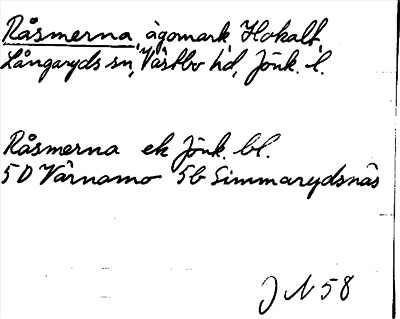 Råsmerna ägomark, Hokalt,
Långaryds sn, Västbo hd, Jönk. l.
Råsmerna ek Jönk. bl.
5 D Värnamo 5b Simmarydsnäs
J N 58